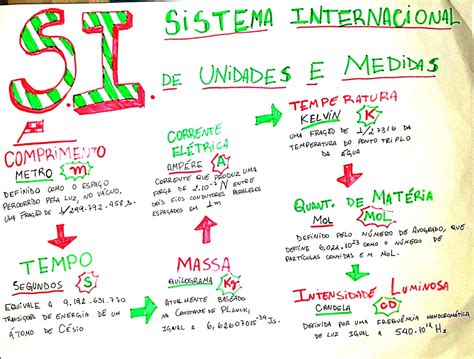 S.I.
SISTEMA INTERNACIONAL
DE UNIDADES E MEDIDAS
COMPRIMENTO
METRO m
DEFINIDO COMO O ESPAÇO
PERCORRIDO PELA LUZ, NO VÁCUO,
UMA FRAÇÃO DE 1/299.792.458s.
TEMPO
SEGUNDOS S
EQUIVALE A 9.192.631.770
TRANSIÇÕES DE ENERGIA DE UM
ÁTOMO DE CÉSIO.
CORRENTE
ELÉTRICA
AMPÉRE A
CORRENTE QUE PRODUZ UMA
FORÇA DE 2.10⁻⁷ N ENTRE
DOIS FIOS CONDUTORES PARALELOS
ESPAÇADOS EM 1m
MASSA
QUILOGRAMA Kg
ATUALMENTE BASEADO
NA CONSTANTE DE PLANCK,
IGUAL A 6,62607015⁻³⁴ Js.
TEMPERATURA
KELVIN K
UMA FRAÇÃO DE 1/273,16 DA
TEMPERATURA DO PONTO TRIPLO
DA ÁGUA
QUANT. DE MATÉRIA
MOL MOL
DEFINIDO PELO NÚMERO DE AVOGADO, QUE
DEFINE 6,022.10²³ COMO O NÚMERO DE
PARTÍCULAS CONTIDAS EM MOL.
INTENSIDADE LUMINOSA
CANDELA CD
DEFINIDA POR UMA FREQUÊNCIA MONOCROMÁTICA
DE LUZ IGUAL A 540.10¹² Hz